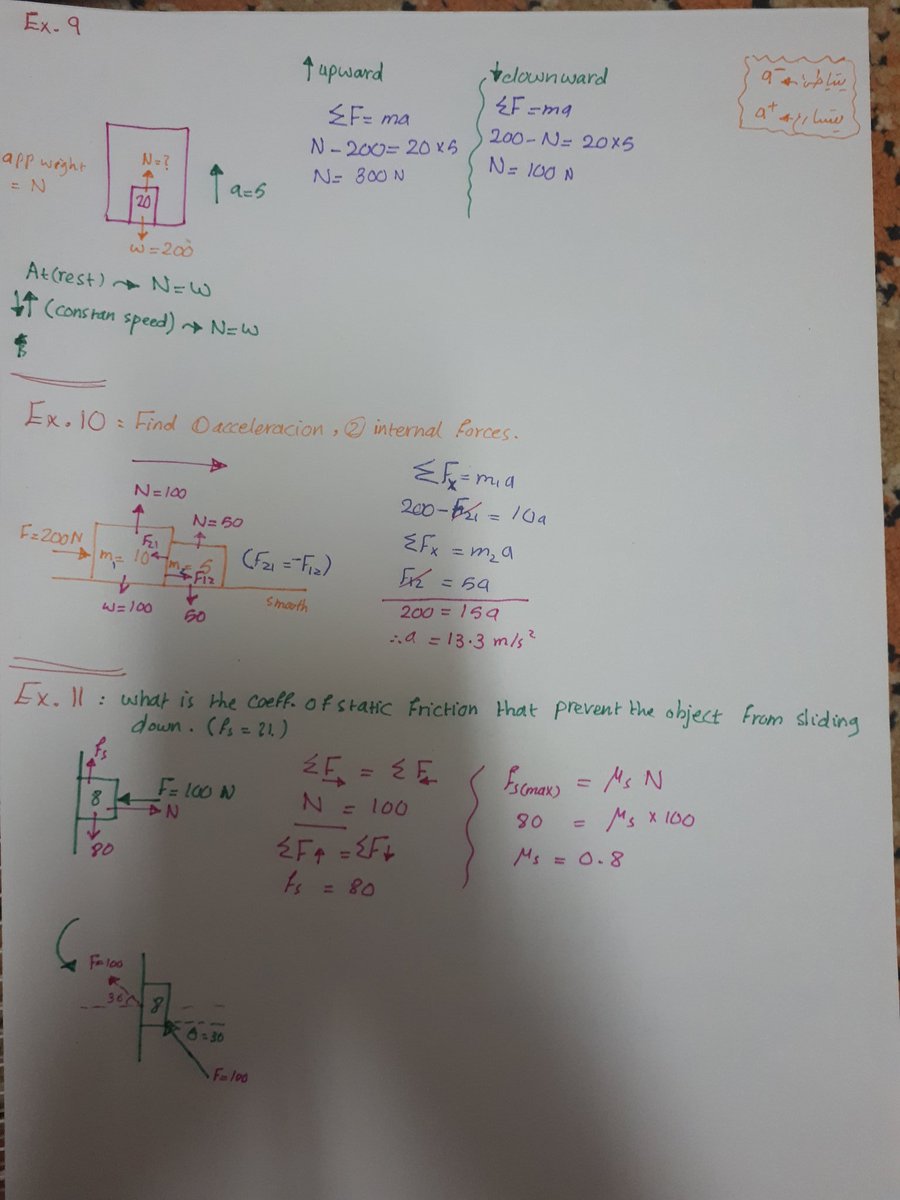 Ex. 9
↑ upward
ΣF = ma
N - 200 = 20×5
N = 300 N
↓ downward
ΣF = ma
200 - N = 20×5
N = 100 N
a⁻ ← يتباطئ
a⁺ ← يتسارع
app weight
= N
N=?
20
w = 200
↑ a=5
At(rest) → N=w
↓↑ (constan speed) → N=w
Ex. 10 : Find ① acceleracion , ② internal forces.
N=100
N=50
F=200N
F21
m1= 10
m2= 5
F12
(F21 = -F12)
w=100
50
smooth
ΣFx = m1a
200 - F21 = 10a
ΣFx = m2a
F12 = 5a
200 = 15a
∴a = 13.3 m/s²
Ex. 11 : what is the coeff. of static friction that prevent the object from sliding
down. (fs = ?!.)
fs
8
F=100 N
N
80
ΣF→ = ΣF←
N = 100
ΣF↑ = ΣF↓
fs = 80
fs(max) = μs N
80 = μs × 100
μs = 0.8
F=100
30
8
θ=30
F=100